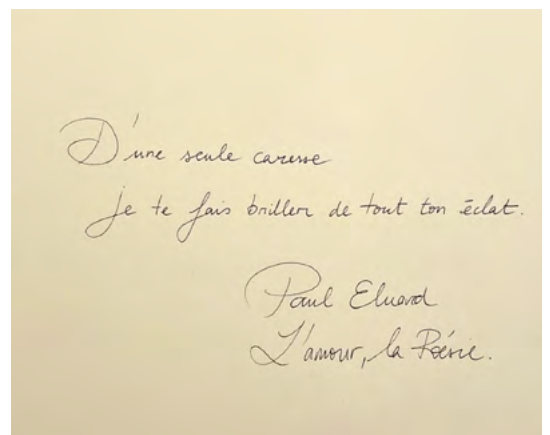 D'une seule caresse
je te fais briller de tout ton éclat.
Paul Eluard
L'amour, la Poésie.